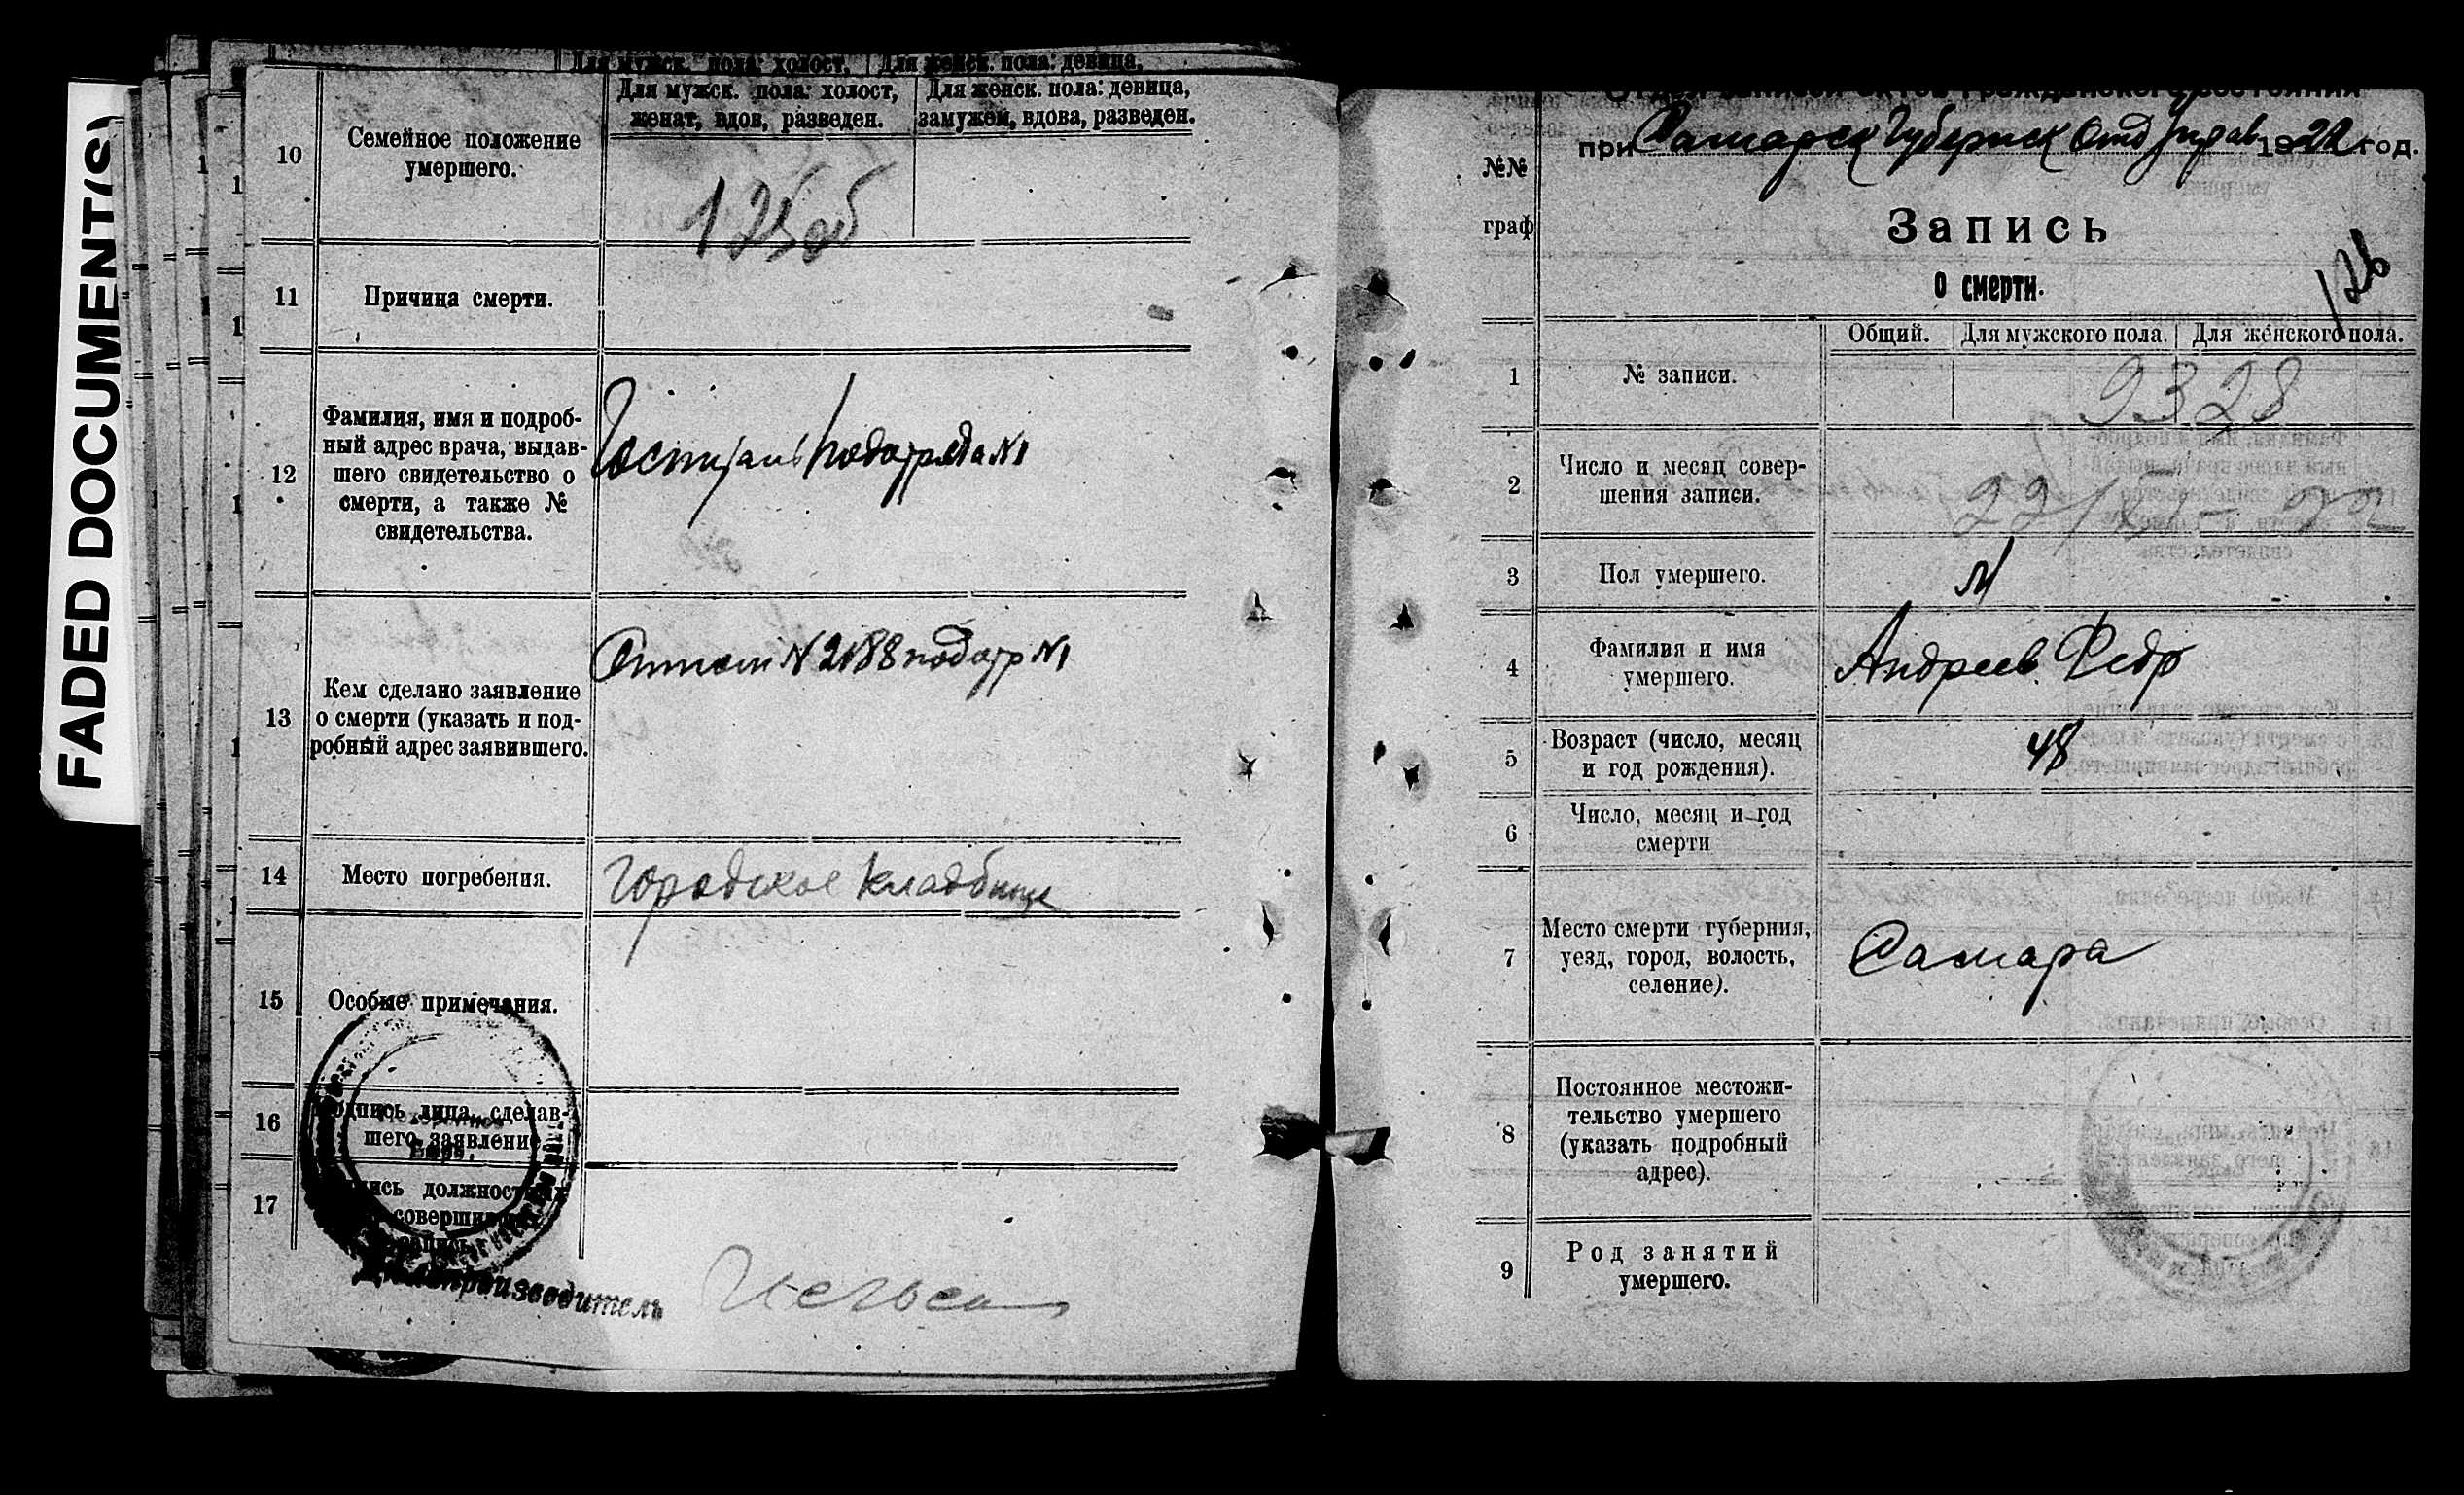 FADED DOCUMENT(S)
Для мужск. пола: холост, Для женск. пола: девица,
10
Семейное положение
умершего.
Для мужск. пола: холост,
женат, вдов, разведен.
Для женск. пола: девица,
замужем, вдова, разведен.
125 об
11
Причина смерти.
12
Фамилия, имя и подроб-
ный адрес врача, выдав-
шего свидетельство о
смерти, а также №
свидетельства.
Госпиталь подотряда №1
13
Кем сделано заявление
о смерти (указать и под-
робный адрес заявившего.
N 2188 подотр N1
14
Место погребения.
Городское кладбище
15
Особые примечания.
16
Подпись лица, сделав-
шего заявление
17
должност
соверши
Делопроизводитель
Отдел записи актов гражданского состояния
при Самарск Губернск Отд Управ 1922 год.
№№
граф
Запись
о смерти.
126
Общий. Для мужского пола. Для женского пола.
1
№ записи.
9328
2
Число и месяц совер-
шения записи.
3
Пол умершего.
М
4
Фамилия и имя
умершего.
Андреев Федр
5
Возраст (число, месяц
и год рождения).
48
6
Число, месяц и год
смерти
7
Место смерти губерния,
уезд, город, волость,
селение).
Самара
8
Постоянное местожи-
тельство умершего
(указать подробный
адрес).
9
Род занятий
умершего.